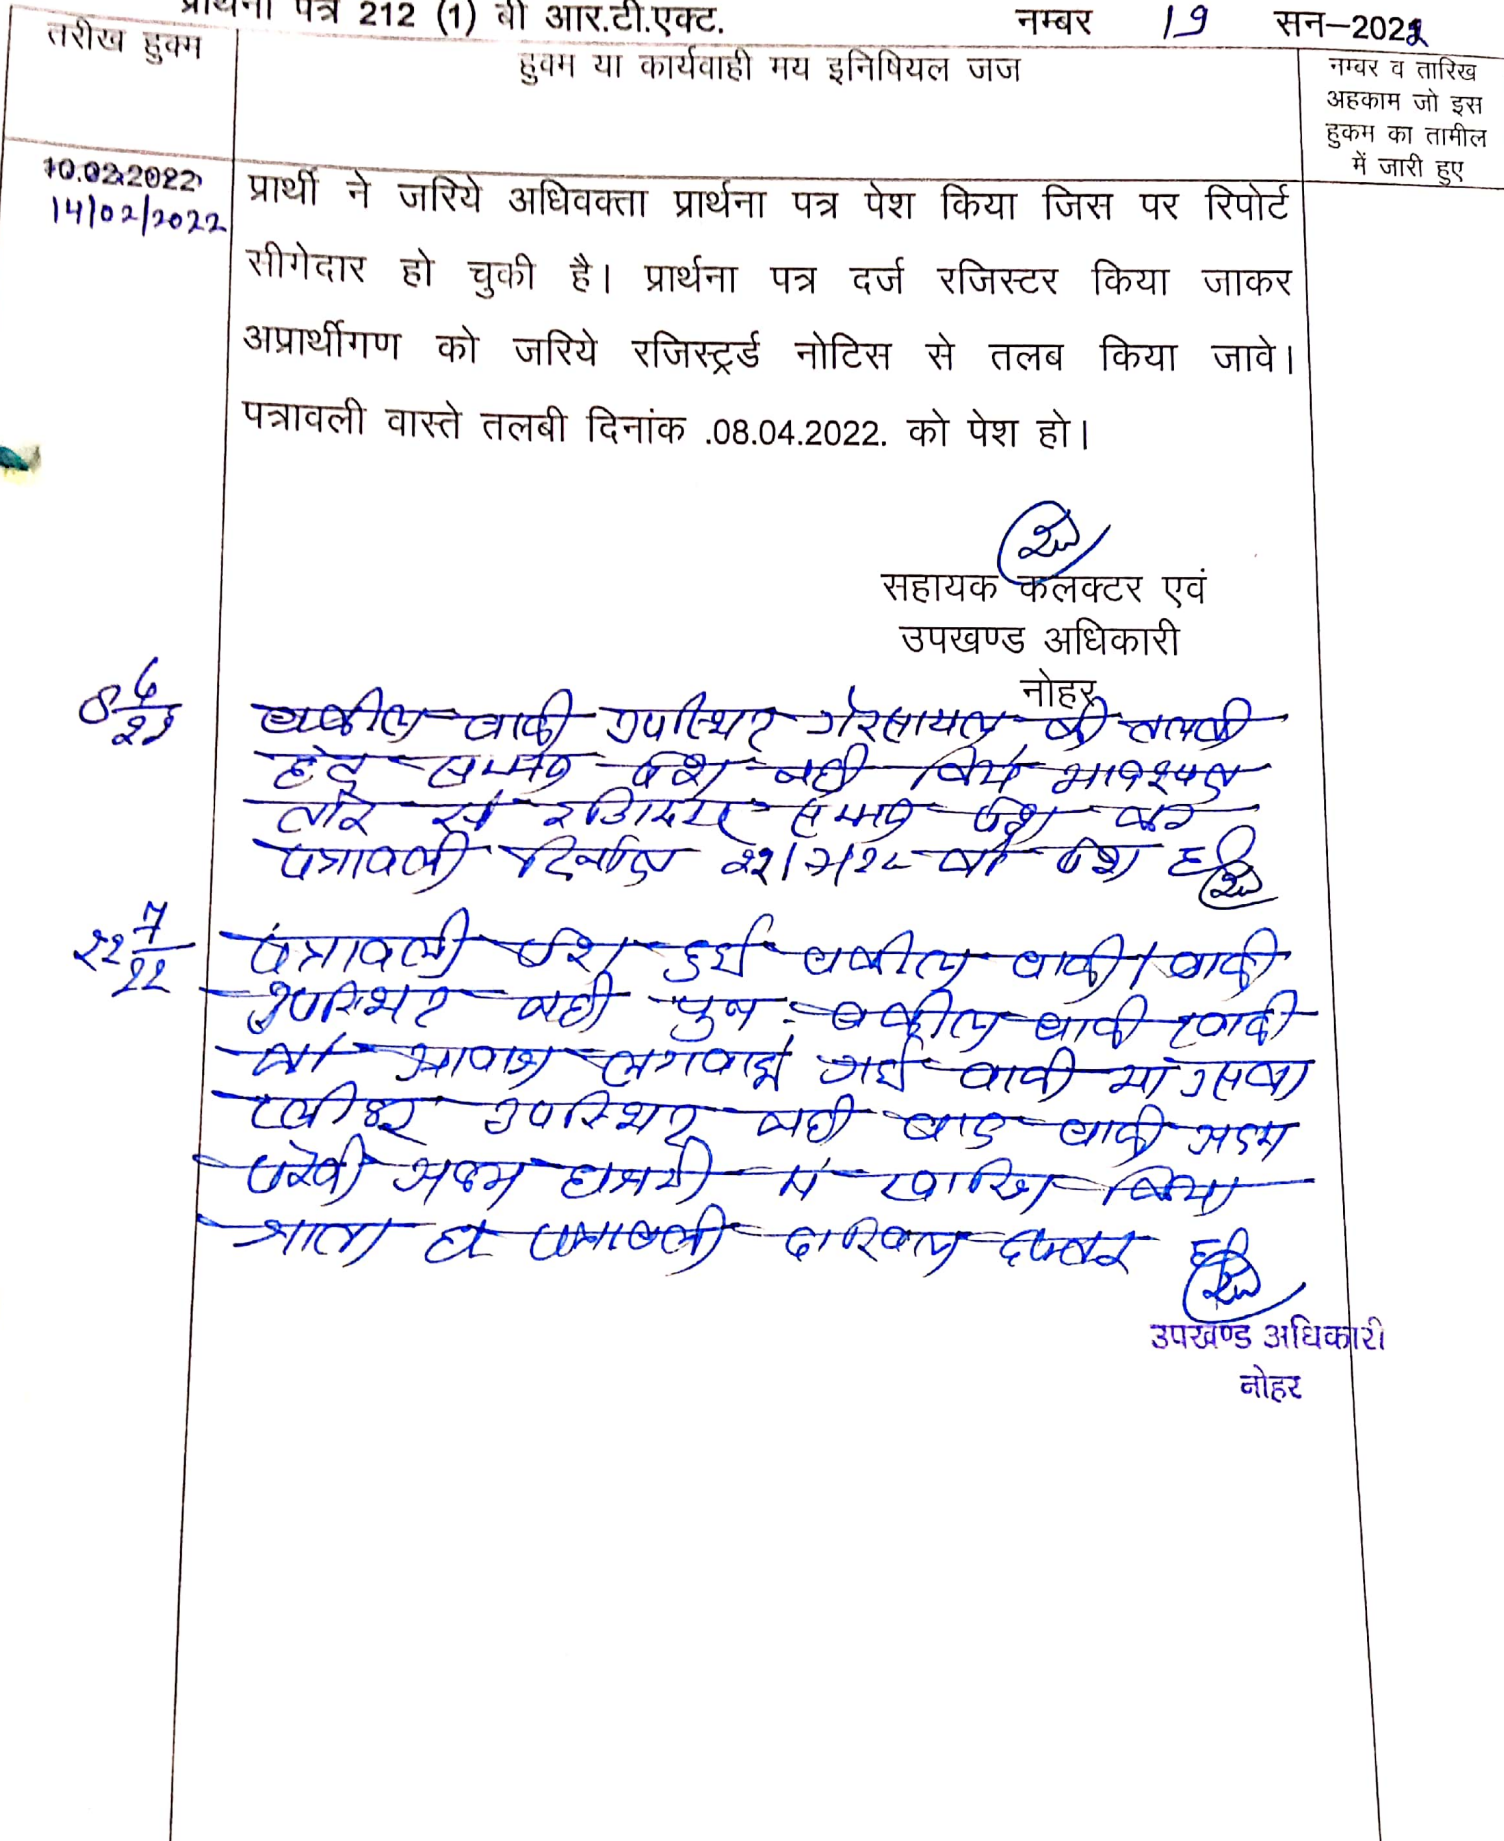 प्रार्थना पत्र 212 (1) बी आर.टी.एक्ट. नम्बर 19 सन–2022
तरीख हुक्म
हुक्म या कार्यवाही मय इनिषियल जज
नम्वर व तारिख
अहकाम जो इस
हुकम का तामील
में जारी हुए
10.02.2022
14/02/2022
प्रार्थी ने जरिये अधिवक्ता प्रार्थना पत्र पेश किया जिस पर रिपोर्ट
सीगेदार हो चुकी है। प्रार्थना पत्र दर्ज रजिस्टर किया जाकर
अप्रार्थीगण को जरिये रजिस्ट्रर्ड नोटिस से तलब किया जावे।
पत्रावली वास्ते तलबी दिनांक .08.04.2022. को पेश हो।
सहायक कलक्टर एवं
उपखण्ड अधिकारी
नोहर
वकील वादी उपस्थित गेरसायल की तलबी
हेतु सम्मन पेश नही किये आवश्यक
तौर से सम्मन पेश करे
पत्रावली दिनांक को पेश हो
22 7/22
पत्रावली पेश हुई वकील वादी / वादी
उपस्थित नही पुन: वकील वादी वादी
को आवाज लगवाई गई वादी या उसका
प्लीडर उपस्थित नही वाद वादी अदम
पेरवी अदम हाजरी में खारिज किया
जाता है पत्रावली दाखिल दफ्तर हो
उपखण्ड अधिकारी
नोहर